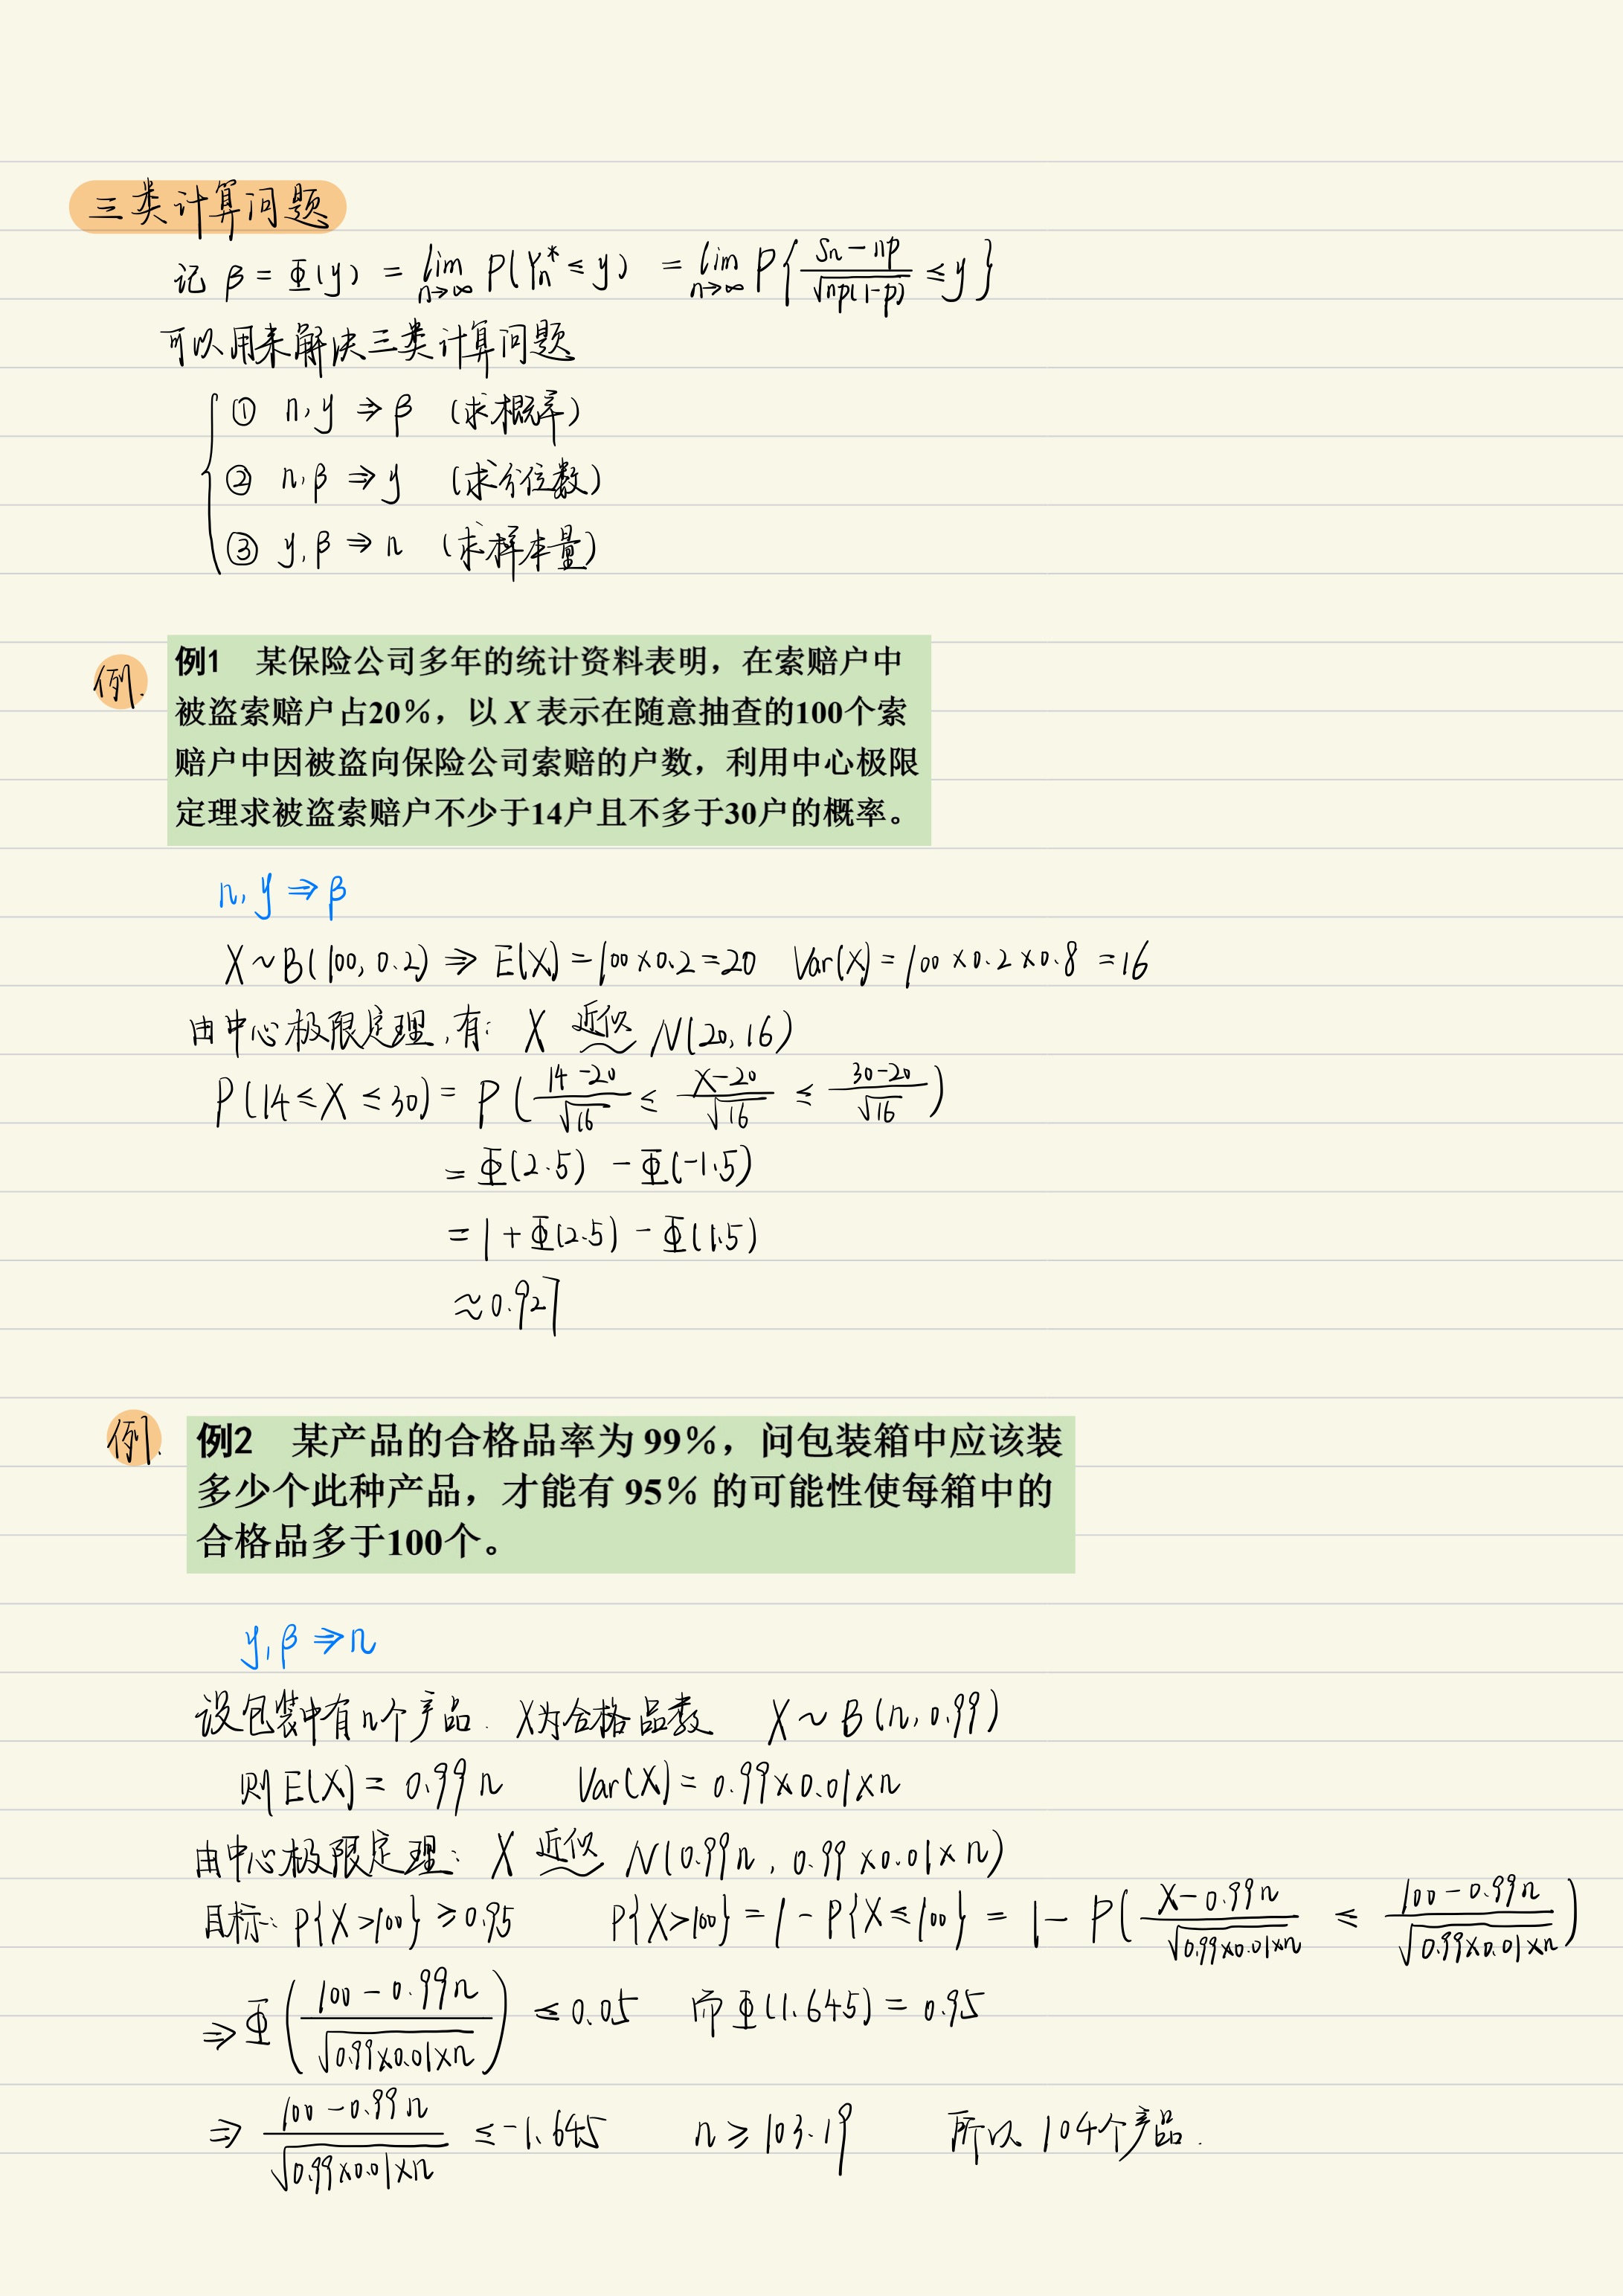 三类计算问题
记 β = Φ(y) = lim n→∞ P(Yn* ≤ y) = lim n→∞ P{ (Sn - np) / √(np(1-p)) ≤ y }
可以用来解决三类计算问题
① n, y ⇒ β (求概率)
② n, β ⇒ y (求分位数)
③ y, β ⇒ n (求样本量)
例.
例1 某保险公司多年的统计资料表明，在索赔户中
被盗索赔户占20%，以 X 表示在随意抽查的100个索
赔户中因被盗向保险公司索赔的户数，利用中心极限
定理求被盗索赔户不少于14户且不多于30户的概率。
n, y ⇒ β
X ~ B(100, 0.2) ⇒ E(X) = 100×0.2 = 20 Var(X) = 100×0.2×0.8 = 16
由中心极限定理, 有: X 近似~ N(20, 16)
P(14 ≤ X ≤ 30) = P( (14-20)/√16 ≤ (X-20)/√16 ≤ (30-20)/√16 )
= Φ(2.5) - Φ(-1.5)
= 1 + Φ(2.5) - Φ(1.5)
≈ 0.927
例.
例2 某产品的合格品率为 99%，问包装箱中应该装
多少个此种产品，才能有 95% 的可能性使每箱中的
合格品多于100个。
y, β ⇒ n
设包装中有n个产品. X为合格品数 X ~ B(n, 0.99)
则 E(X) = 0.99n Var(X) = 0.99×0.01×n
由中心极限定理: X 近似~ N(0.99n, 0.99×0.01×n)
目标: P{X>100} ≥ 0.95 P{X>100} = 1 - P{X≤100} = 1 - P( (X-0.99n)/√(0.99×0.01×n) ≤ (100-0.99n)/√(0.99×0.01×n) )
⇒ Φ( (100-0.99n)/√(0.99×0.01×n) ) ≤ 0.05 而 Φ(1.645) = 0.95
⇒ (100-0.99n)/√(0.99×0.01×n) ≤ -1.645 n ≥ 103.19 所以 104个产品.